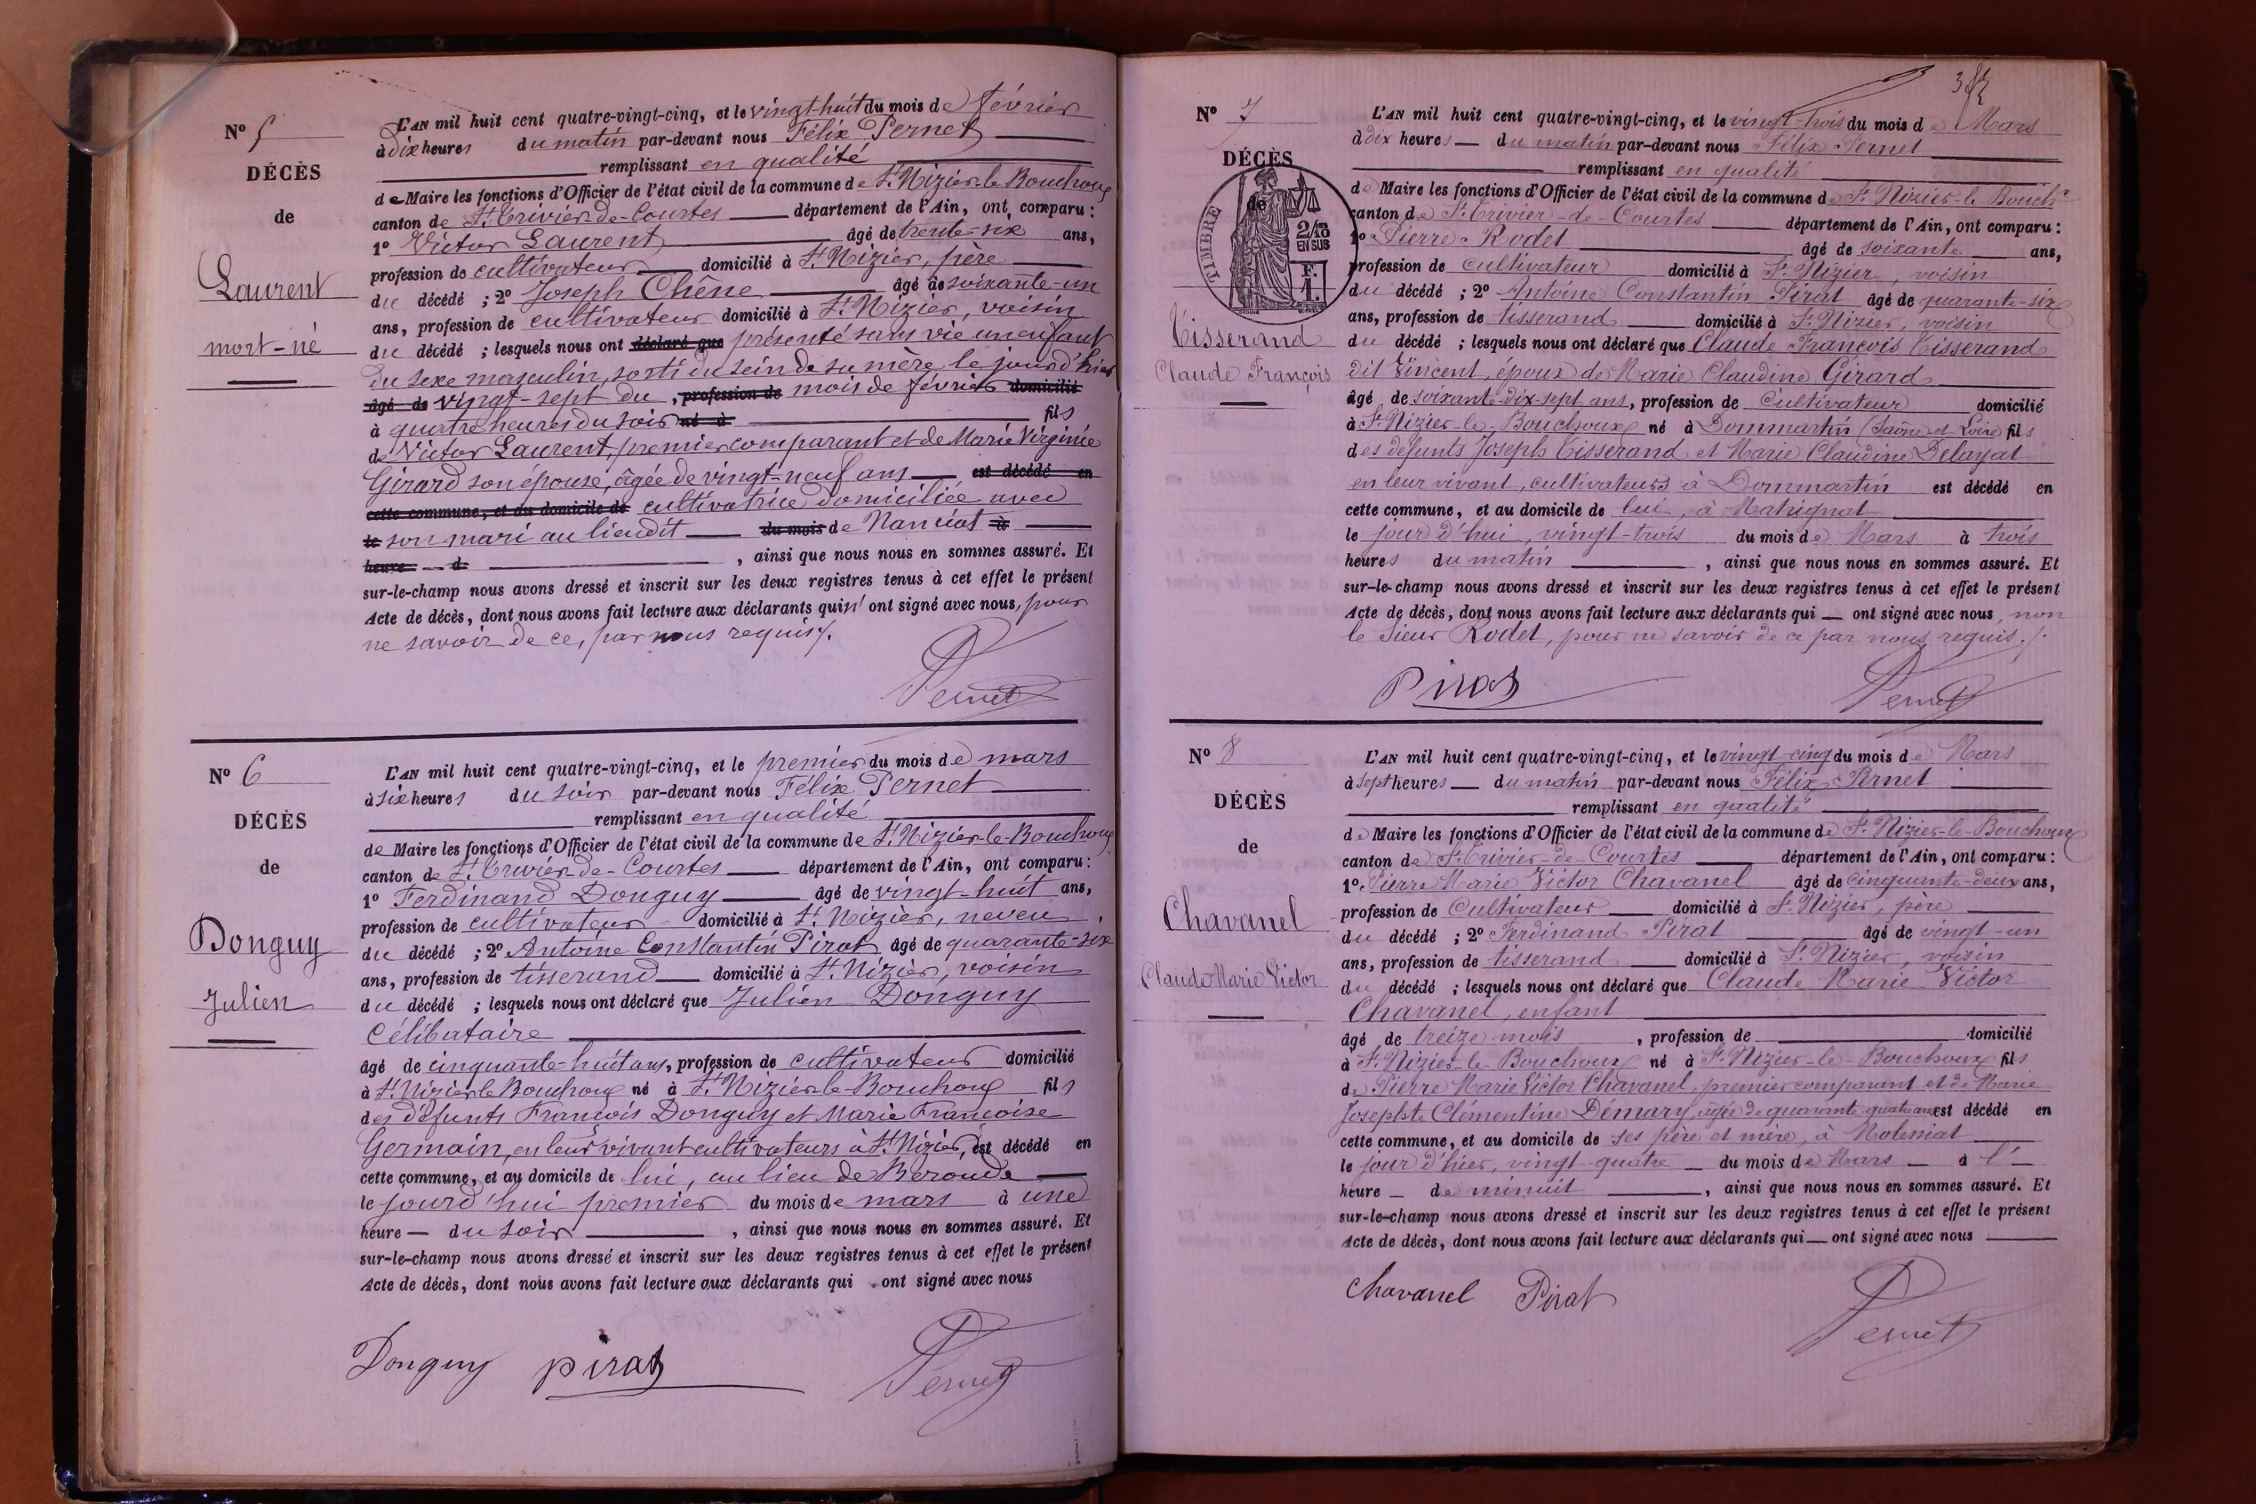 Nº 5
DÉCÈS
de
Laurent
mort-né
L'AN mil huit cent quatre-vingt-cinq, et le vingt-huit du mois de février
à dix heures du matin par-devant nous Félix Pernet
remplissant en qualité
de Maire les fonctions d'Officier de l'état civil de la commune de St Nizier-le-Bouchoux
canton de St Trivier-de-Courtes département de l'Ain, ont comparu :
1º Victor Laurent âgé de trente-six ans,
profession de cultivateur domicilié à St Nizier, père
du décédé ; 2º Joseph Chêne âgé de soixante-un
ans, profession de cultivateur domicilié à St Nizier, voisin
du décédé ; lesquels nous ont déclaré que présenté sans vie un enfant
du sexe masculin, sorti du sein de sa mère le jour d'hier
âgé de vingt-sept du , profession de mois de février domicilié
à quatre heures du soir né à fils
de Victor Laurent, premier comparant et de Marie Virginie
Girard son épouse, âgée de vingt-neuf ans est décédé en
cette commune, et au domicile de cultivatrice domiciliée avec
le son mari au lieu dit du mois de Nanciat à
heure d , ainsi que nous nous en sommes assuré. Et
sur-le-champ nous avons dressé et inscrit sur les deux registres tenus à cet effet le présent
Acte de décès, dont nous avons fait lecture aux déclarants qui n'ont signé avec nous, pour
ne savoir de ce, par nous requis /.
Pernet
Nº 6
DÉCÈS
de
Donguy
Julien
L'AN mil huit cent quatre-vingt-cinq, et le premier du mois de mars
à six heures du soir par-devant nous Félix Pernet
remplissant en qualité
de Maire les fonctions d'Officier de l'état civil de la commune de St Nizier-le-Bouchoux
canton de St Trivier-de-Courtes département de l'Ain, ont comparu :
1º Ferdinand Donguy âgé de vingt-huit ans,
profession de cultivateur domicilié à St Nizier, neveu
du décédé ; 2º Antoine Constantin Pirat âgé de quarante-six
ans, profession de tisserand domicilié à St Nizier, voisin
du décédé ; lesquels nous ont déclaré que Julien Donguy
Célibataire
âgé de cinquante-huit ans, profession de cultivateur domicilié
à St Nizier le Bouchoux né à St Nizier-le-Bouchoux fils
des défunts François Donguy et Marie Françoise
Germain, en leur vivant cultivateurs à St Nizier, est décédé en
cette commune, et au domicile de lui, au lieu de Beroude
le jourd'hui premier du mois de mars à une
heure du soir , ainsi que nous nous en sommes assuré. Et
sur-le-champ nous avons dressé et inscrit sur les deux registres tenus à cet effet le présent
Acte de décès, dont nous avons fait lecture aux déclarants qui ont signé avec nous
Donguy pirat Pernet
Nº 7
DÉCÈS
de
TIMBRE
2/10 EN SUS
F. 1.
Tisserand
Claude François
L'AN mil huit cent quatre-vingt-cinq, et le vingt-trois du mois de Mars
à dix heures du matin par-devant nous Félix Pernet
remplissant en qualité
de Maire les fonctions d'Officier de l'état civil de la commune de St Nizier-le-Bouchx
canton de St Trivier-de-Courtes département de l'Ain, ont comparu :
1º Pierre Rodet âgé de soixante ans,
profession de cultivateur domicilié à St Nizier, voisin
du décédé ; 2º Antoine Constantin Pirat âgé de quarante-six
ans, profession de tisserand domicilié à St Nizier, voisin
du décédé ; lesquels nous ont déclaré que Claude François Tisserand
dit Vincent, époux de Marie Claudine Girard
âgé de soixante-dix-sept ans, profession de Cultivateur domicilié
à St Nizier-le-Bouchoux né à Dommartin (Saône et Loire) fils
des défunts Joseph Tisserand et Marie Claudine Delayat
en leur vivant, cultivateurs à Dommartin est décédé en
cette commune, et au domicile de lui, à Matrignat
le jour d'hui, vingt-trois du mois de Mars à trois
heures du matin , ainsi que nous nous en sommes assuré. Et
sur-le-champ nous avons dressé et inscrit sur les deux registres tenus à cet effet le présent
Acte de décès, dont nous avons fait lecture aux déclarants qui ont signé avec nous, non
le sieur Rodet, pour ne savoir de ce par nous requis /.
Pirat Pernet
Nº 8
DÉCÈS
de
Chavanel
Claude Marie Victor
L'AN mil huit cent quatre-vingt-cinq, et le vingt-cinq du mois de Mars
à sept heures du matin par-devant nous Félix Pernet
remplissant en qualité
de Maire les fonctions d'Officier de l'état civil de la commune de St Nizier-le-Bouchoux
canton de St Trivier-de-Courtes département de l'Ain, ont comparu :
1º Pierre Marie Victor Chavanel âgé de cinquante-deux ans,
profession de Cultivateur domicilié à St Nizier, père
du décédé ; 2º Ferdinand Pirat âgé de vingt-un
ans, profession de tisserand domicilié à St Nizier, voisin
du décédé ; lesquels nous ont déclaré que Claude Marie Victor
Chavanel, enfant
âgé de treize mois , profession de domicilié
à St Nizier-le-Bouchoux né à St Nizier-le-Bouchoux fils
de Pierre Marie Victor Chavanel, premier comparant et de Marie
Josephte Clémentine Démary, âgée de quarante-quatre ans est décédé en
cette commune, et au domicile de ses père et mère, à Moleniat
le jour d'hier, vingt-quatre du mois de Mars à l'
heure de minuit , ainsi que nous nous en sommes assuré. Et
sur-le-champ nous avons dressé et inscrit sur les deux registres tenus à cet effet le présent
Acte de décès, dont nous avons fait lecture aux déclarants qui ont signé avec nous
Chavanel Pirat Pernet